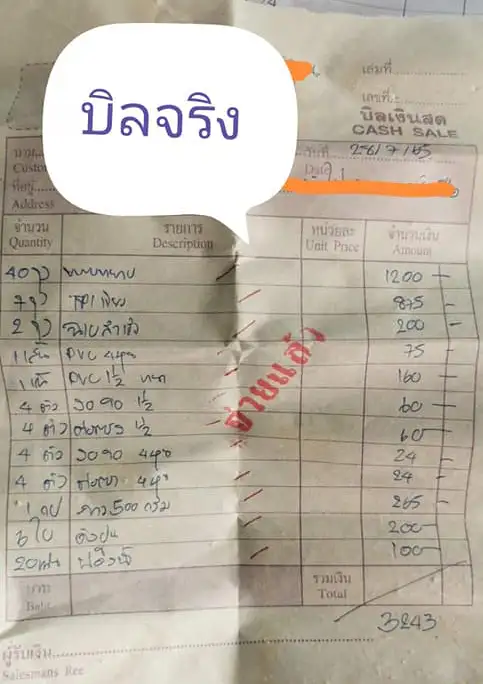 บิลจริง
เล่มที่
เลขที่
บิลเงินสด
CASH SALE
นาม
วันที่ 26/7/65
Date
ที่อยู่
Address
จำนวน รายการ หน่วยละ จำนวนเงิน
Quantity Description Unit Price Amount
40 1200 -
7 TPI เขียว 875 -
2 ฉาบสำเร็จ 200 -
1 เส้น PVC 4 หุน 75 -
1 เส้น PVC 1 1/2 160 -
4 ตัว งอ 90 1/2 60 -
4 ตัว ต่อตรง 1/2 60 -
4 ตัว งอ 90 4 หุน 24 -
4 ตัว 4 หุน 24 -
1 กาว 500 กรัม 265 -
3 ใบ ถังปูน 200 -
20 100 -
จ่ายแล้ว
บาท
Baht
รวมเงิน
Total
3243
ผู้รับเงิน
Salesmans Ree